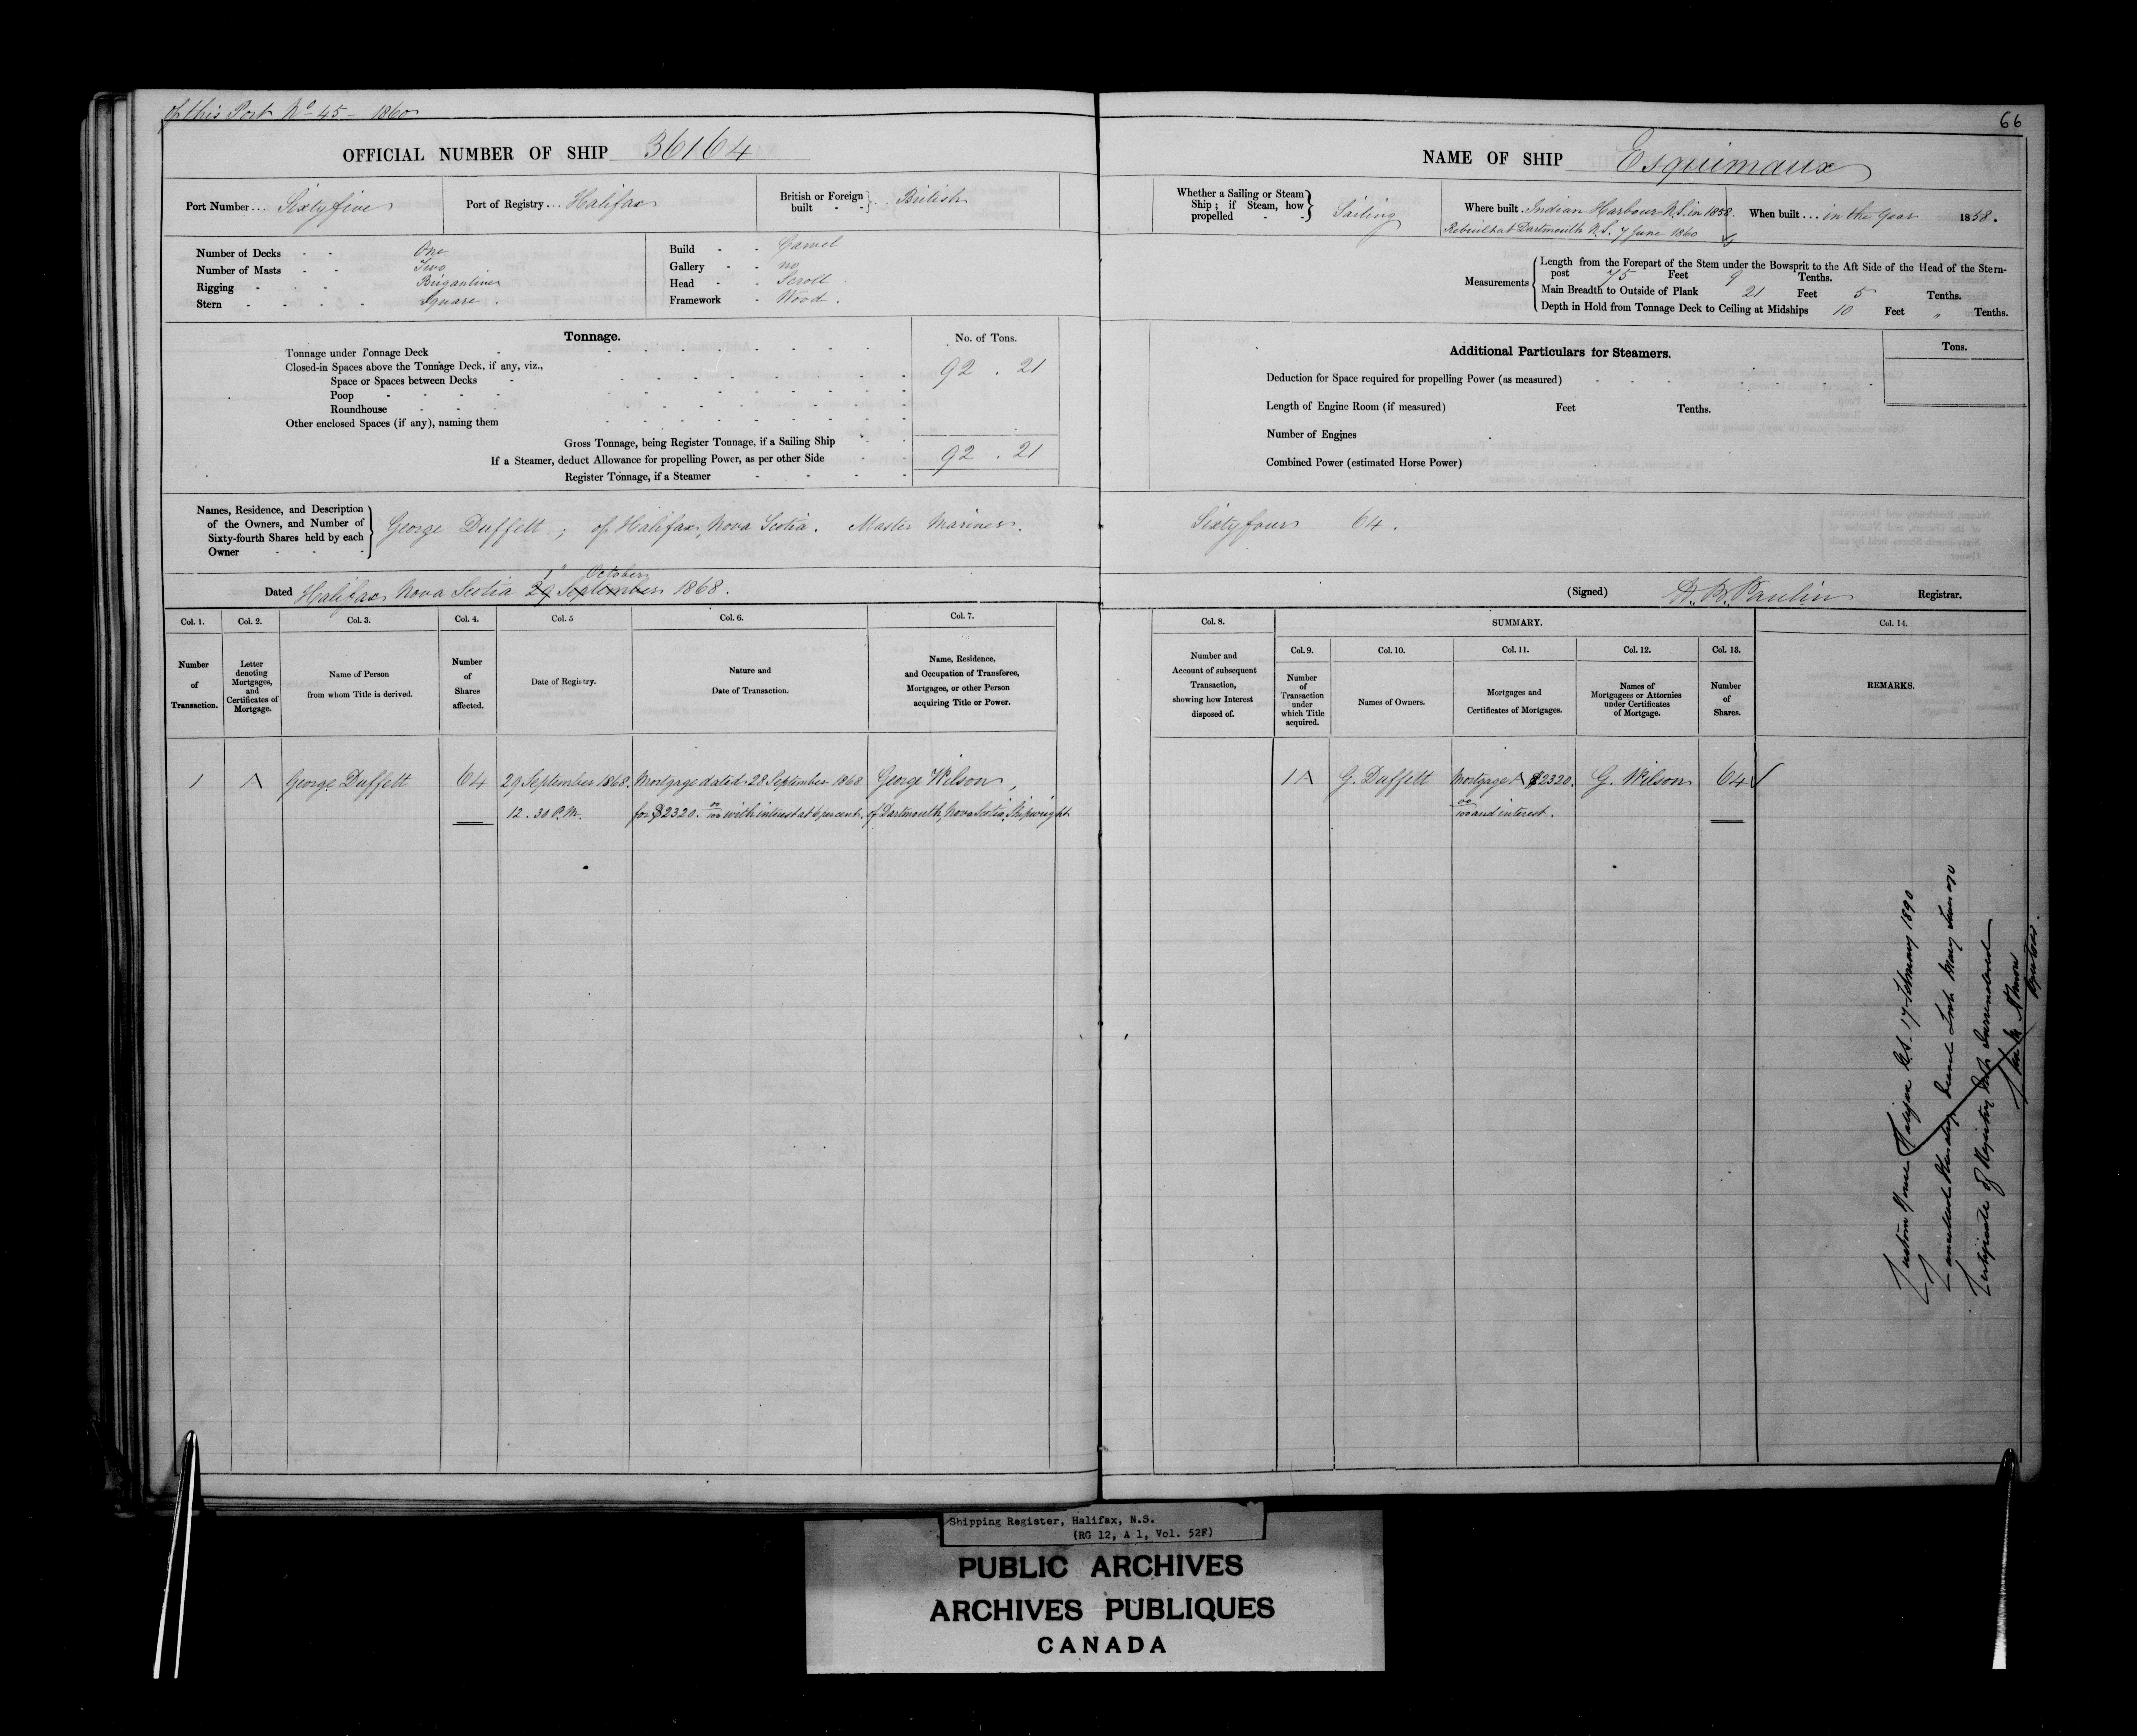 of this Port No 45 - 1860
66
OFFICIAL NUMBER OF SHIP 36164
NAME OF SHIP Esquimaux
Port Number... Sixty five
Port of Registry... Halifax
British or Foreign built - - } British
Whether a Sailing or Steam Ship; if Steam, how propelled - - } Sailing
Where built. Indian Harbour N.S. in 1858.
Rebuilt at Dartmouth N.S. 7 June 1860
When built... in the year 1858.
Number of Decks - - One
Number of Masts - - Two
Rigging - - - Brigantine
Stern - - - - Square.
Build - - Carvel
Gallery - - no
Head - - Scroll
Framework - Wood.
Measurements { Length from the Forepart of the Stem under the Bowsprit to the Aft Side of the Head of the Stern-
post 75 Feet 9 Tenths.
Main Breadth to Outside of Plank 21 Feet 5 Tenths.
Depth in Hold from Tonnage Deck to Ceiling at Midships 10 Feet " Tenths.
Tonnage.
No. of Tons.
Tonnage under Tonnage Deck
Closed-in Spaces above the Tonnage Deck, if any, viz.,
92 . 21
Space or Spaces between Decks
Poop
Roundhouse
Other enclosed Spaces (if any), naming them
Gross Tonnage, being Register Tonnage, if a Sailing Ship
If a Steamer, deduct Allowance for propelling Power, as per other Side
92 . 21
Register Tonnage, if a Steamer
Additional Particulars for Steamers.
Tons.
Deduction for Space required for propelling Power (as measured)
Length of Engine Room (if measured) Feet Tenths.
Number of Engines
Combined Power (estimated Horse Power)
Names, Residence, and Description
of the Owners, and Number of
Sixty-fourth Shares held by each
Owner
George Duffett; of Halifax, Nova Scotia. Master Mariner.
Sixty four 64.
1st October
Dated Halifax Nova Scotia 29 September 1868.
(Signed) Registrar.
Col. 1.
Col. 2.
Col. 3.
Col. 4.
Col. 5
Col. 6.
Col. 7.
Col. 8.
SUMMARY.
Col. 14.
Number of Transaction.
Letter denoting Mortgages, and Certificates of Mortgage.
Name of Person from whom Title is derived.
Number of Shares affected.
Date of Registry.
Nature and Date of Transaction.
Name, Residence, and Occupation of Transferee, Mortgagee, or other Person acquiring Title or Power.
Number and Account of subsequent Transaction, showing how Interest disposed of.
Col. 9.
Col. 10.
Col. 11.
Col. 12.
Col. 13.
Number of Transaction under which Title acquired.
Names of Owners.
Mortgages and Certificates of Mortgages.
Names of Mortgagees or Attornies under Certificates of Mortgage.
Number of Shares.
REMARKS.
1 A George Duffett 64 29 September 1868. Mortgage dated 28 September 1868 George Wilson,
12.30 P.M. for $2320.00/100 with interest at 6 percent. of Dartmouth, Nova Scotia, Shipwright
1 A G. Duffett Mortgage A $2320. G. Wilson 64
00/100 and interest.
Custom House Halifax N.S. 17 February 1890
Certificate of Registry not surrendered
Shipping Register, Halifax, N.S.
(RG 12, A 1, Vol. 52F)
PUBLIC ARCHIVES
ARCHIVES PUBLIQUES
CANADA